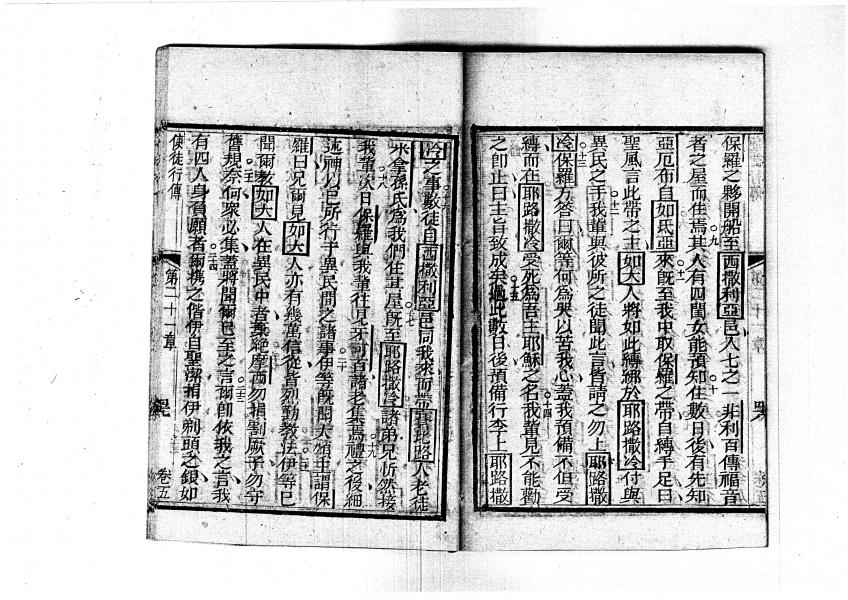 保羅之夥開船至西撒利亞邑入七之一非利百傳福音
者之屋而住焉其人有四閨女能預知住數日後有先知
亞厄布自如氐亞來既至我中取保羅之帶自縛手足曰
聖風言此帶之主如大人將如此縛綁於耶路撒冷付與
異民之手我輩與彼所之徒聞此言皆請之勿上耶路撒
冷保羅方答曰爾等何為哭以苦我心蓋我預備不但受
縛而在耶路撒冷受死為吾主耶穌之名我輩見不能勸
之卽止曰主旨致成矣過此數日後預備行李上耶路撒
冷之事數徒自西撒利亞邑同我來而帶 比路人老徒
米拿孫氏為我們住其屋既至耶路撒冷諸弟兄忻然接
我輩次日保羅與我輩往見牙可百諸老集焉禮之後細
述神以己所行于異民間之諸事伊等既聞大頌主謂保
羅曰兄爾見如大人亦有幾萬信從皆烈勤教法伊等已
聞爾教如大人在異民中者棄絕摩西勿損割厥子勿守
舊規奈何眾必集蓋將聞爾已至之言爾卽依我之言我
有四人身負願者爾攜之偕伊自聖潔捐伊剃頭之銀如
使徒行傳
第二十一章
卷五